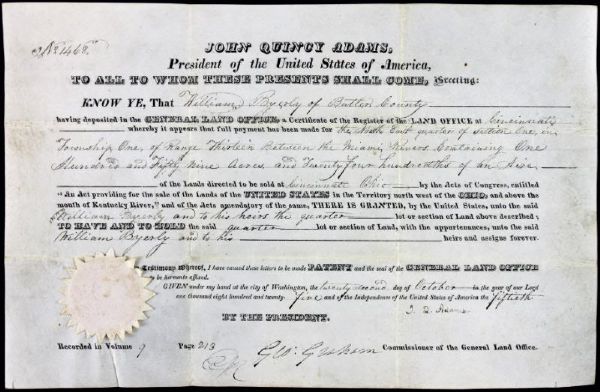 No 1468
JOHN QUINCY ADAMS,
President of the United States of America,
TO ALL TO WHOM THESE PRESENTS SHALL COME, Greeting:
KNOW YE, That William Byerly of Butler County
having deposited in the GENERAL LAND OFFICE, a Certificate of the Register of the LAND OFFICE at Cincinnati
whereby it appears that full payment has been made for the North East quarter of Section One, in
Township One, of Range Thirteen Between the Miami Rivers, Containing One
Hundred and Fifty Nine Acres, and Twenty four hundredths of an Acre
of the Lands directed to be sold at Cincinnati Ohio by the Acts of Congress, entitled
"An Act providing for the sale of the Lands of the UNITED STATES in the Territory northwest of the OHIO, and above the
mouth of Kentucky River," and of the Acts amendatory of the same, THERE IS GRANTED, by the United States, unto the said
William Byerly and to his heirs the quarter lot or section of Land above described;
TO HAVE AND TO HOLD the said quarter lot or section of Land, with the appurtenances, unto the said
William Byerly and to his heirs and assigns forever.
Testimony Whereof, I have caused these letters to be made PATENT and the seal of the GENERAL LAND OFFICE
to be hereunto affixed.
GIVEN under my hand at the city of Washington, the twenty second day of October in the year of our Lord
one thousand eight hundred and twenty five and of the Independence of the United States of America the fiftieth
J. Q. Adams
BY THE PRESIDENT.
Recorded in Volume 9 Page 213 Geo. Graham Commissioner of the General Land Office.